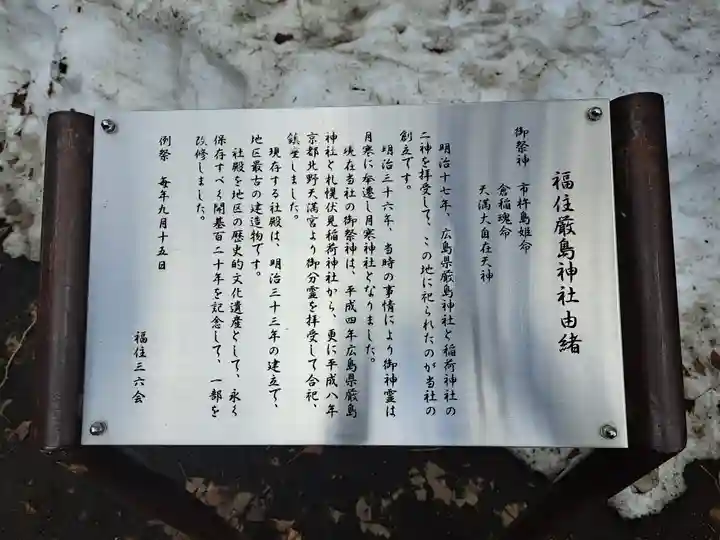 福住厳島神社由緒
御祭神　市杵島姫命
倉稲魂命
天満大自在天神
明治十七年、広島県厳島神社と稲荷神社の
二神を拝受して、この地に祀られたのが当社の
創立です。
明治三十六年、当時の事情により御神霊は
月寒に奉遷し月寒神社となりました。
現在当社の御祭神は、平成四年広島県厳島
神社と札幌伏見稲荷神社から、更に平成八年
京都北野天満宮より御分霊を拝受して合祀、
鎮座しました。
現存する社殿は、明治三十三年の建立で、
地区最古の建造物です。
社殿を地区の歴史的文化遺産として、永く
保存すべく開基百二十年を記念して、一部を
改修しました。
例祭　毎年九月十五日
福住三六会